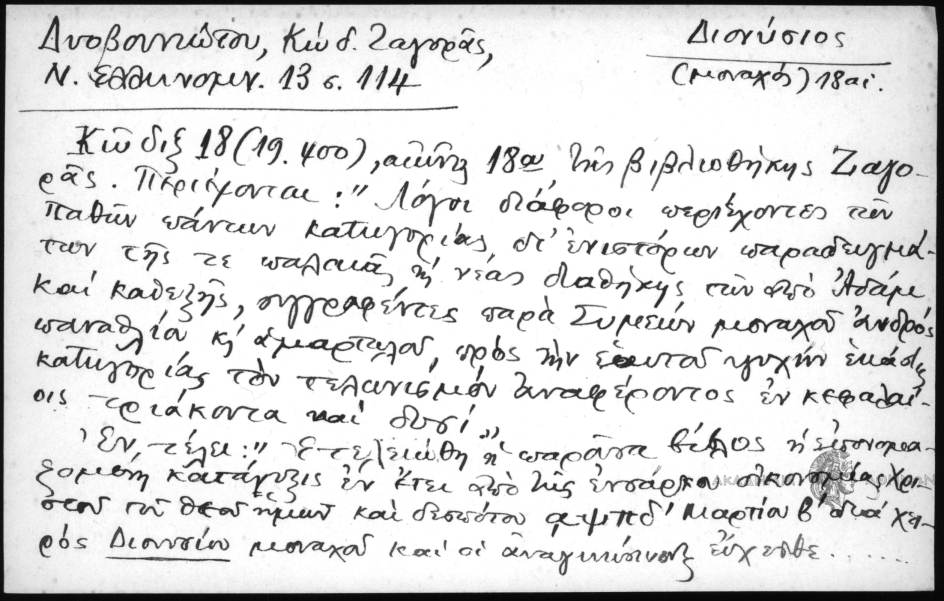 Δυοβουνιώτου, Κώδ. Ζαγορᾶς,
Ν. Ἑλληνομν. 13 σ. 114
Διονύσιος
(μοναχός) 18 αἰ.
Κῶδιξ 18 (19. 400), αἰῶνος 18ου τῆς βιβλιοθήκης Ζαγο-
ρᾶς. Περιέχονται: " Λόγοι διάφοροι περιέχοντες τῶν
παθῶν πάντων κατηγορίας, δι' ἐνιστόρων παραδειγμά-
των τῆς τε παλαιᾶς κ νέας διαθήκης τῶν ἀπὸ Ἀδάμ
καί καθεξῆς, συγγραφέντες παρὰ Συμεών μοναχοῦ ἀνδρός
παναθλίου κ ἁμαρτωλοῦ, πρὸς τὴν ἑαυτοῦ ψυχήν ἑκάστης
κατηγορίας τὸν ἀναφέροντος ἐν κεφαλαί-
οις τριάκοντα καί δυσί."
Ἐν τέλει: " Ἐτελειώθη ἡ παροῦσα βίβλος ἡ ἐπονομα-
ζομένη κατάνυξις ἐν ἔτει ἀπὸ τῆς ἐνσάρκου οἰκονομίας Χρι-
στοῦ τοῦ θεοῦ ἡμῶν καί δεσπότου αψπδ' Μαρτίου β' διά χει-
ρός Διονυσίου μοναχοῦ καί οἱ ἀναγινώσκοντες εὔχεσθε ......